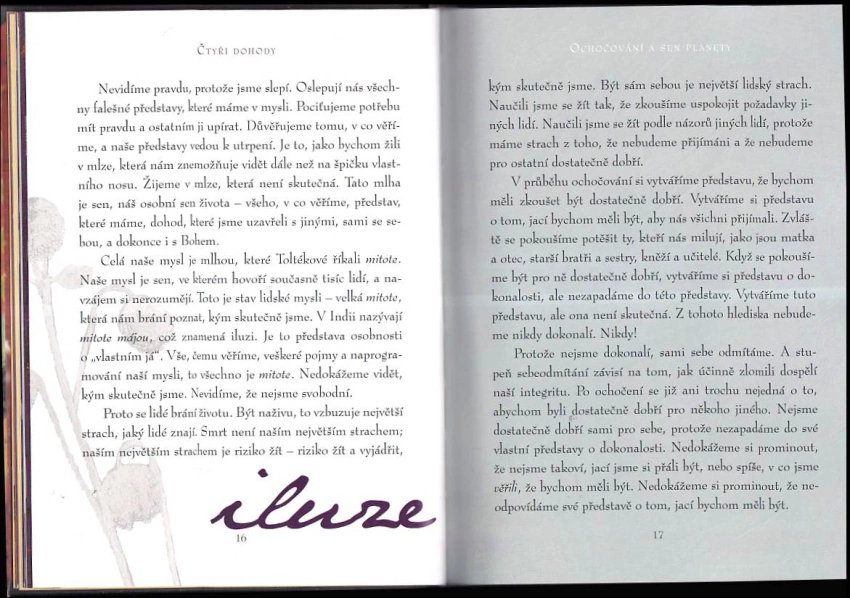 Čtyři dohody
Nevidíme pravdu, protože jsme slepí. Oslepují nás všech-
ny falešné představy, které máme v mysli. Pociťujeme potřebu
mít pravdu a ostatním ji upírat. Důvěřujeme tomu, v co věří-
me, a naše představy vedou k utrpení. Je to, jako bychom žili
v mlze, která nám znemožňuje vidět dále než na špičku vlast-
ního nosu. Žijeme v mlze, která není skutečná. Tato mlha
je sen, náš osobní sen života – všeho, v co věříme, představ,
které máme, dohod, které jsme uzavřeli s jinými, sami se se-
bou, a dokonce i s Bohem.
Celá naše mysl je mlhou, které Toltékové říkali mitote.
Naše mysl je sen, ve kterém hovoří současně tisíc lidí, a na-
vzájem si nerozumějí. Toto je stav lidské mysli – velká mitote,
která nám brání poznat, kým skutečně jsme. V Indii nazývají
mitote májou, což znamená iluzi. Je to představa osobnosti
o „vlastním já“. Vše, čemu věříme, veškeré pojmy a naprogra-
mování naší mysli, to všechno je mitote. Nedokážeme vidět,
kým skutečně jsme. Nevidíme, že nejsme svobodní.
Proto se lidé brání životu. Být naživu, to vzbuzuje největší
strach, jaký lidé znají. Smrt není naším největším strachem;
naším největším strachem je riziko žít – riziko žít a vyjádřit,
iluze
16
Ochočování a sen planety
kým skutečně jsme. Být sám sebou je největší lidský strach.
Naučili jsme se žít tak, že zkoušíme uspokojit požadavky ji-
ných lidí. Naučili jsme se žít podle názorů jiných lidí, protože
máme strach z toho, že nebudeme přijímáni a že nebudeme
pro ostatní dostatečně dobří.
V průběhu ochočování si vytváříme představu, že bychom
měli zkoušet být dostatečně dobří. Vytváříme si představu
o tom, jací bychom měli být, aby nás všichni přijímali. Zvláš-
tě se pokoušíme potěšit ty, kteří nás milují, jako jsou matka
a otec, starší bratři a sestry, kněží a učitelé. Když se pokouší-
me být pro ně dostatečně dobří, vytváříme si představu o do-
konalosti, ale nezapadáme do této představy. Vytváříme tuto
představu, ale ona není skutečná. Z tohoto hlediska nebude-
me nikdy dokonalí. Nikdy!
Protože nejsme dokonalí, sami sebe odmítáme. A stu-
peň sebeodmítání závisí na tom, jak účinně zlomili dospělí
naší integritu. Po ochočení se již ani trochu nejedná o to,
abychom byli dostatečně dobří pro někoho jiného. Nejsme
dostatečně dobří sami pro sebe, protože nezapadáme do své
vlastní představy o dokonalosti. Nedokážeme si prominout,
že nejsme takoví, jací jsme si přáli být, nebo spíše, v co jsme
věřili, že bychom měli být. Nedokážeme si prominout, že ne-
odpovídáme své představě o tom, jací bychom měli být.
17